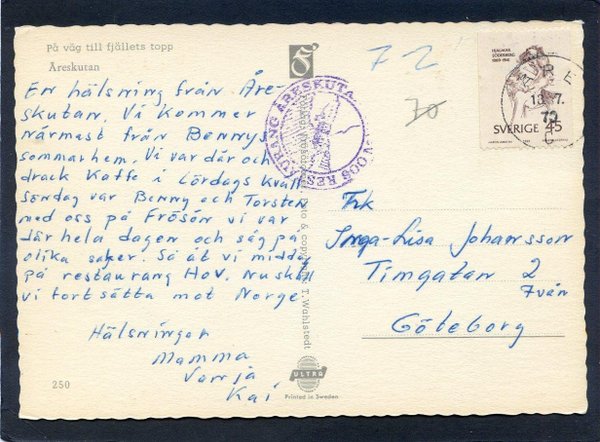 På väg till fjällets topp
Åreskutan
En hälsning från Åre-
skutan. Vi kommer
närmast från Bennys
sommarhem. Vi var där och
drack Kaffe i Lördags Kväll
Söndag var Benny och Torsten
med oss på Frösön vi var
där hela dagen och såg på
olika saker. Så åt vi middag
på restaurang Hov. Nu skall
vi fortsätta mot Norge
Hälsningar
Mamma
Vanja
Kai
250
72
70
HJALMAR
SÖDERBERG
1869-1941
SVERIGE 45
ÅRE
13.7.
70
RESTAURANG ÅRESKUTAN
Foto & copyright: T. Wahlstedt
ULTRA
Printed in Sweden
Frk
Inga-Lisa Johansson
Timgatan 2
7 vån
Göteborg